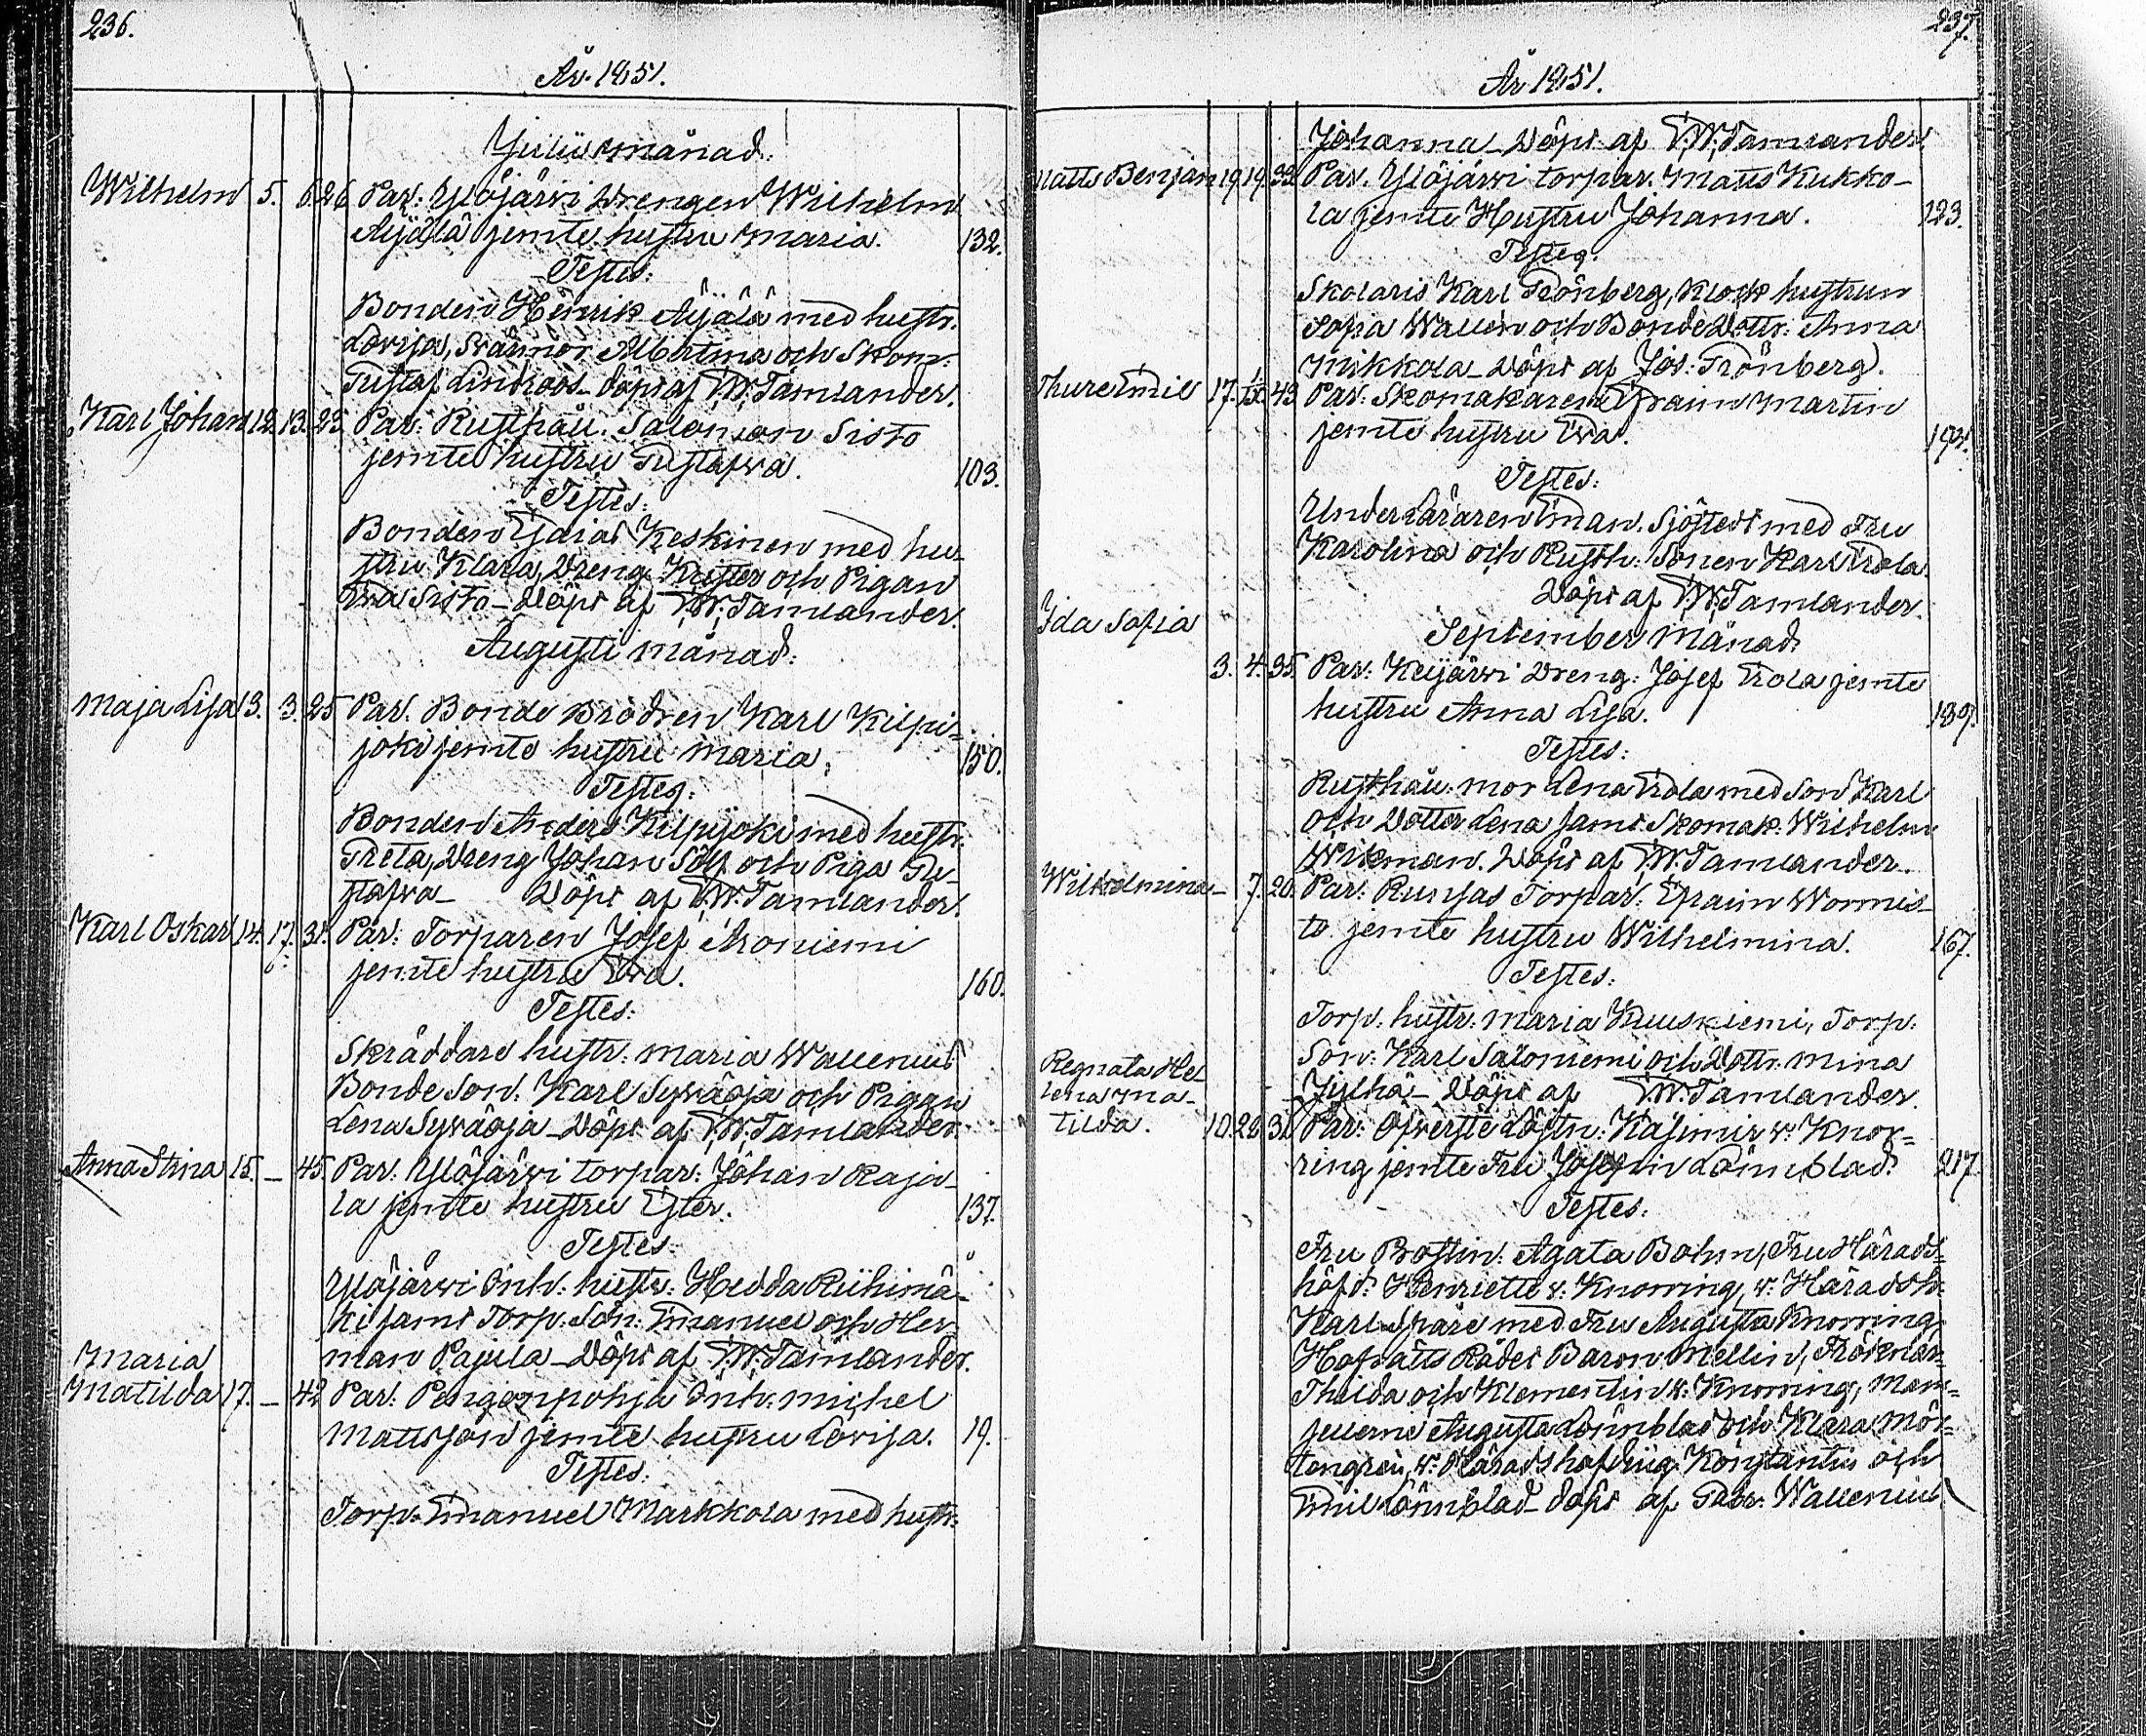 236.
År 1851.
Julii månad.
Wilhelm 5. 6. 26 Par: Ylöjärvi Drengen Wilhelm
Äijälä jemte hustru Maria. 132.
Testes:
Bonden Henrik Äijälä med hustr.
Lovisa, Svärmor Albertina och Skom:
Gustaf Lindroos. Döpt af F.W. Tamlander.
Karl Johan 12. 13. 23. Par: Rusthåll. Salomon Sisto
jemte hustru Gustafva. 103.
Testes:
Bonden Esaias Keskinen med hu-
stru Klara, Dreng Kuster och Pigan
Eva Sisto_ Döpt af F.W. Tamlander.
Augusti månad:
Maja Lisa 3. 3. 25 Par. Bonde Brodren Karl Kilpi=
joki jemte hustru Maria. 150.
Testes:
Bonden Anders Kilpijoki med hustr.
Greta, Dreng Johan Sölf och Piga Gu-
stafva_ Döpt af F.W. Tamlander.
Karl Oskar 14. 17. 31. Par: Torparen Josef Aroniemi
jemte hustru Eva. 160.
Testes:
Skräddare hustr: Maria Wallenius
Bonde Son: Karl Syväoja och Pigan
Lena Syväoja_ Döpt af F.W. Tamlander.
Anna Stina 15. _ 45. Par. Ylöjärvi torpar: Johan Rajo-
la jemte hustru Ester. 137.
Testes:
Ylöjärvi Inh: hustr: Hedda Riihimä-
ki samt Torp. Sön: Emanuel och Her
man Pajula_ Döpt af F.W. Tamlander.
Maria
Matilda 17. _ 42 Par. Pengonpohja Inh: Michel
Mattsson jemte hustru Lovisa. 19.
Testes:
Torp. Emanuel Markkola med hustr:
237.
År 1851.
Johanna_ Döpt af F.W. Tamlander.
Matts Benjam 19. 19. 33. Par. Ylöjärvi torpar. Matts Kukko-
la jemte Hustru Johanna. 123.
Testes.
Skolaris Karl Grönberg, Klock hustrun
Sofia Wallen och Bonde Dottr: Anna
Mikkola_ Döpt af Jos. Grönberg.
Thure Emil 17. 43 Par: Skomakaren Efraim Martin
jemte hustru Eva.
Testes:
Underläraren Eman. Sjöstedt med Fru
Karolina och Rusth: Sonen Karl Erola
Döpt af F.W. Tamlander.
September Månad
Ida Sofia
3. 4. 35. Par: Keijärvi Dreng: Josef Erola jemte
hustru Anna Lisa. 189.
Testes:
Rusthåll: mor Lena Erola med Son Karl
och Dotter Lena samt Skomak: Wilhelm
Wikman. Döpt af F.W. Tamlander.
Wilhelmina _ 7. 20. Par: Runsas Torpar. Efraim Wormis-
to jemte hustru Wilhelmina. 167.
Testes:
Torp. hustr: Maria Kuusniemi, Torp.
Son: Karl Saloniemi och Dottr. Mina
Jylhä_ Döpt af F.W. Tamlander.
Regnata He-
lena Ma-
tilda. 10. 28. 31. Par: Öfverste Löjtn: Kasimir v. Knor=
ring jemte Fru Josefin Lönnblad. 217.
Testes:
Fru Prostin: Agata Bohm, Fru Härads-
höfd: Henriette v. Knorring, v. Häradsh:
Karl Spåre med Fru Augusta Knorring,
Hofrätts Rådet Baron Mellin, Fröknar=
Thilda och Klementin v. Knorring, Mam=
sellerne Augusta Lönnblad och Klara Mör=
tengren, v. Häradshöfding Konstantin och
Emil Lönnblad_ döpt af Gabr: Wallenius